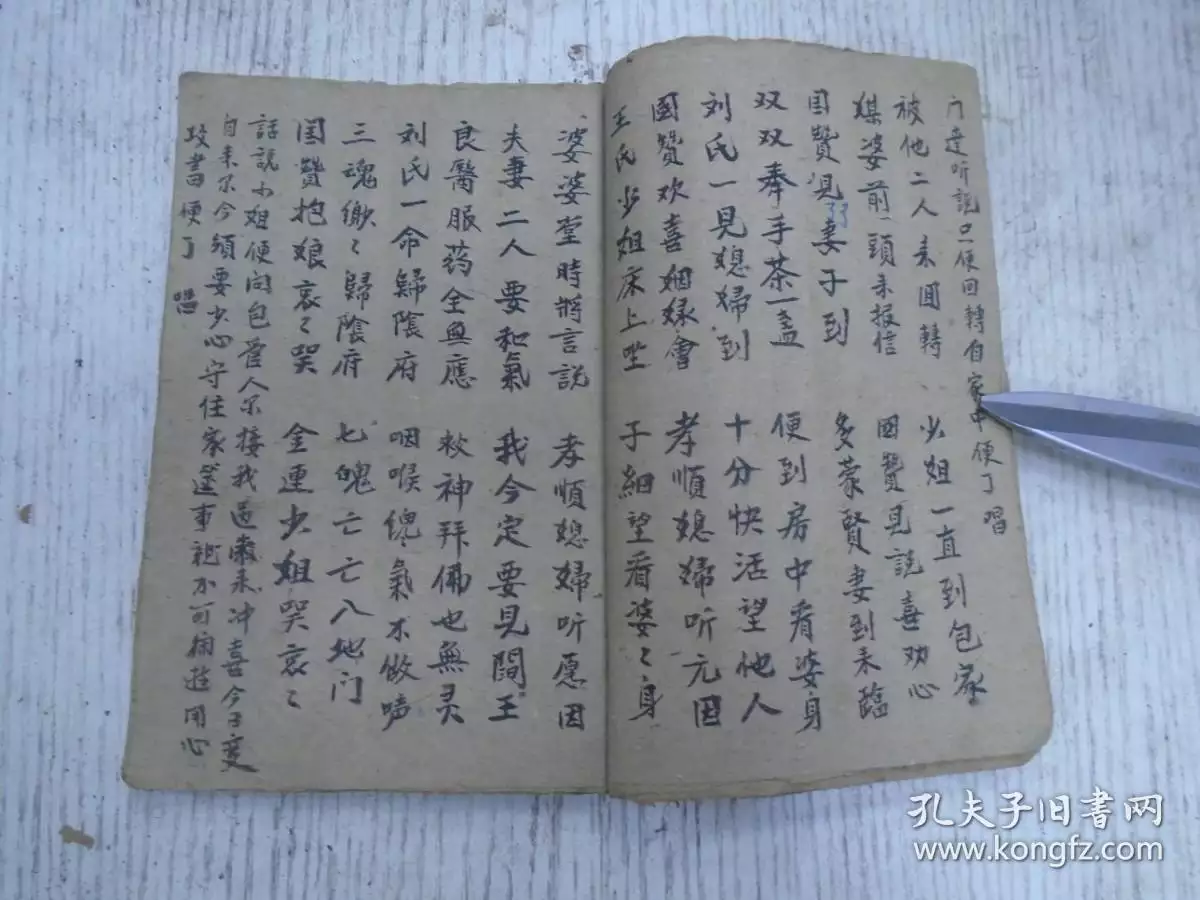 门㢟听説只便回轉自家中便了唱
被他二人未回轉 少姐一直到包家
媒婆前頭未报信 國贊見說喜劝心
国贊見妻子到 多蒙賢妻到未臨
双双奉手茶一盏 便到房中看婆身
刘氏一見媳婦到 十分快活望他人
國贊欢喜姻缘會 孝順媳婦听元因
王氏少姐床上坐 子細望看婆〻身
婆婆堂時將言説 孝順媳婦听愿因
夫妻二人要和氣 我今定要見閻王
良醫服药全無應 救神拜佛也無灵
刘氏一命歸陰府 咽喉絕氣不做声
三魂緲〻歸陰府 七魄亡亡入地门
国贊抱娘哀〻哭 金連少姐哭哀〻
話説小姐便问包官人尔接我过来冲喜今日变
自未尔今須要少心守住家筵事
攻書便了 唱
33
孔夫子旧书网
www.kongfz.com